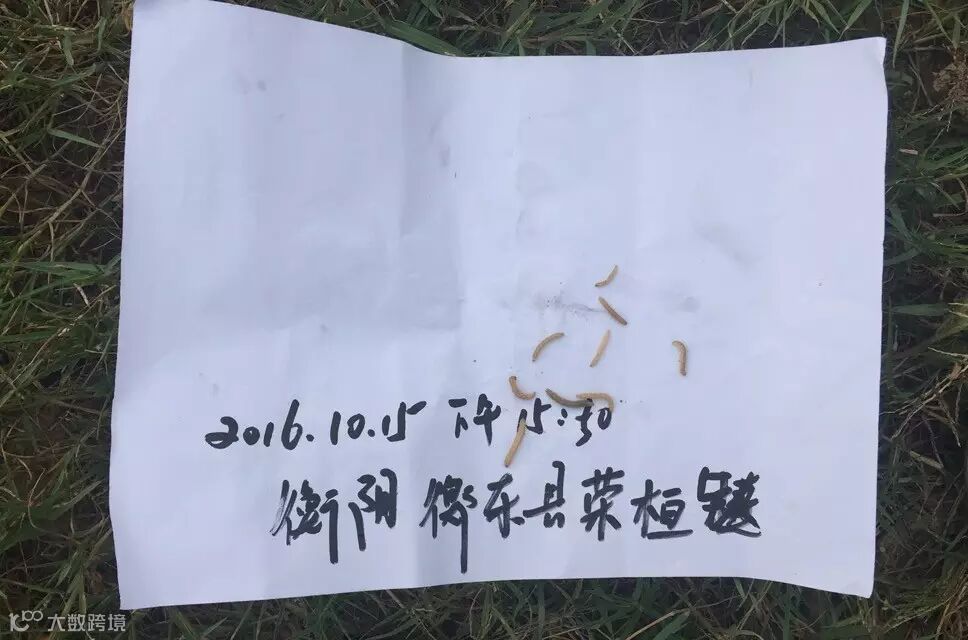 2016.10.15 下午 15:30
衡阳 衡东县荣桓镇
大数跨境